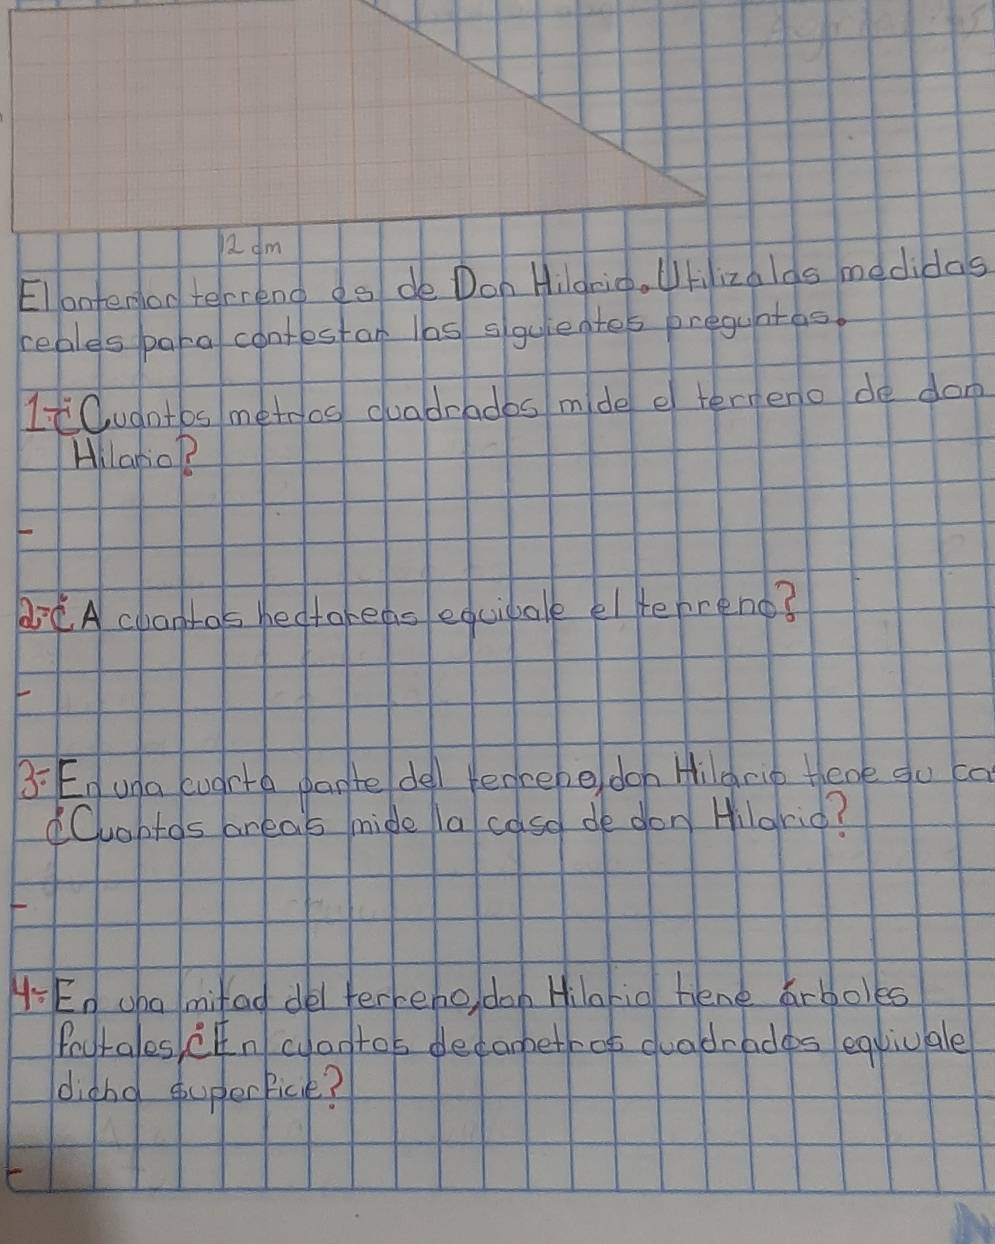 12 dm
El anterior terreno es de Don Hilario. Utiliza las medidas
reales para contestar las siguientes preguntas.
1-¿Cuantos metros cuadrados mide el terreno de don
Hilario?
-
2-¿A cuantas hectareas equivale el terreno?
-
3-En una cuarta parte del terreno, don Hilario tiene su ca
¿Cuantas areas mide la casa de don Hilario?
-
4-En una mitad del terreno, don Hilario tiene árboles
frutales, ¿En cuantos decametros cuadrados equivale
dicha superficie?
-